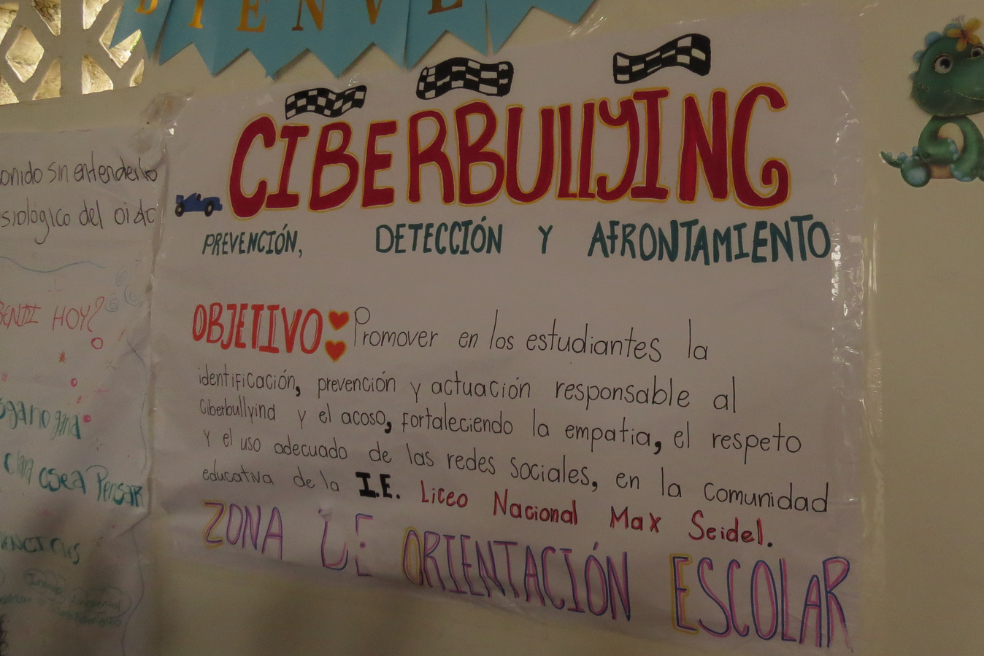 BIENVE
CIBERBULLYING
PREVENCIÓN, DETECCIÓN Y AFRONTAMIENTO
OBJETIVO: Promover en los estudiantes la
identificación, prevención y actuación responsable al
Ciberbullyind y el acoso, fortaleciendo la empatia, el respeto
y el uso adecuado de las redes sociales, en la comunidad
educativa de la I.E. Liceo Nacional Max Seidel.
ZONA DE ORIENTACIÓN ESCOLAR
onido sin entenderlo
siológico del oido
ENDI HOY?
osea Pensar